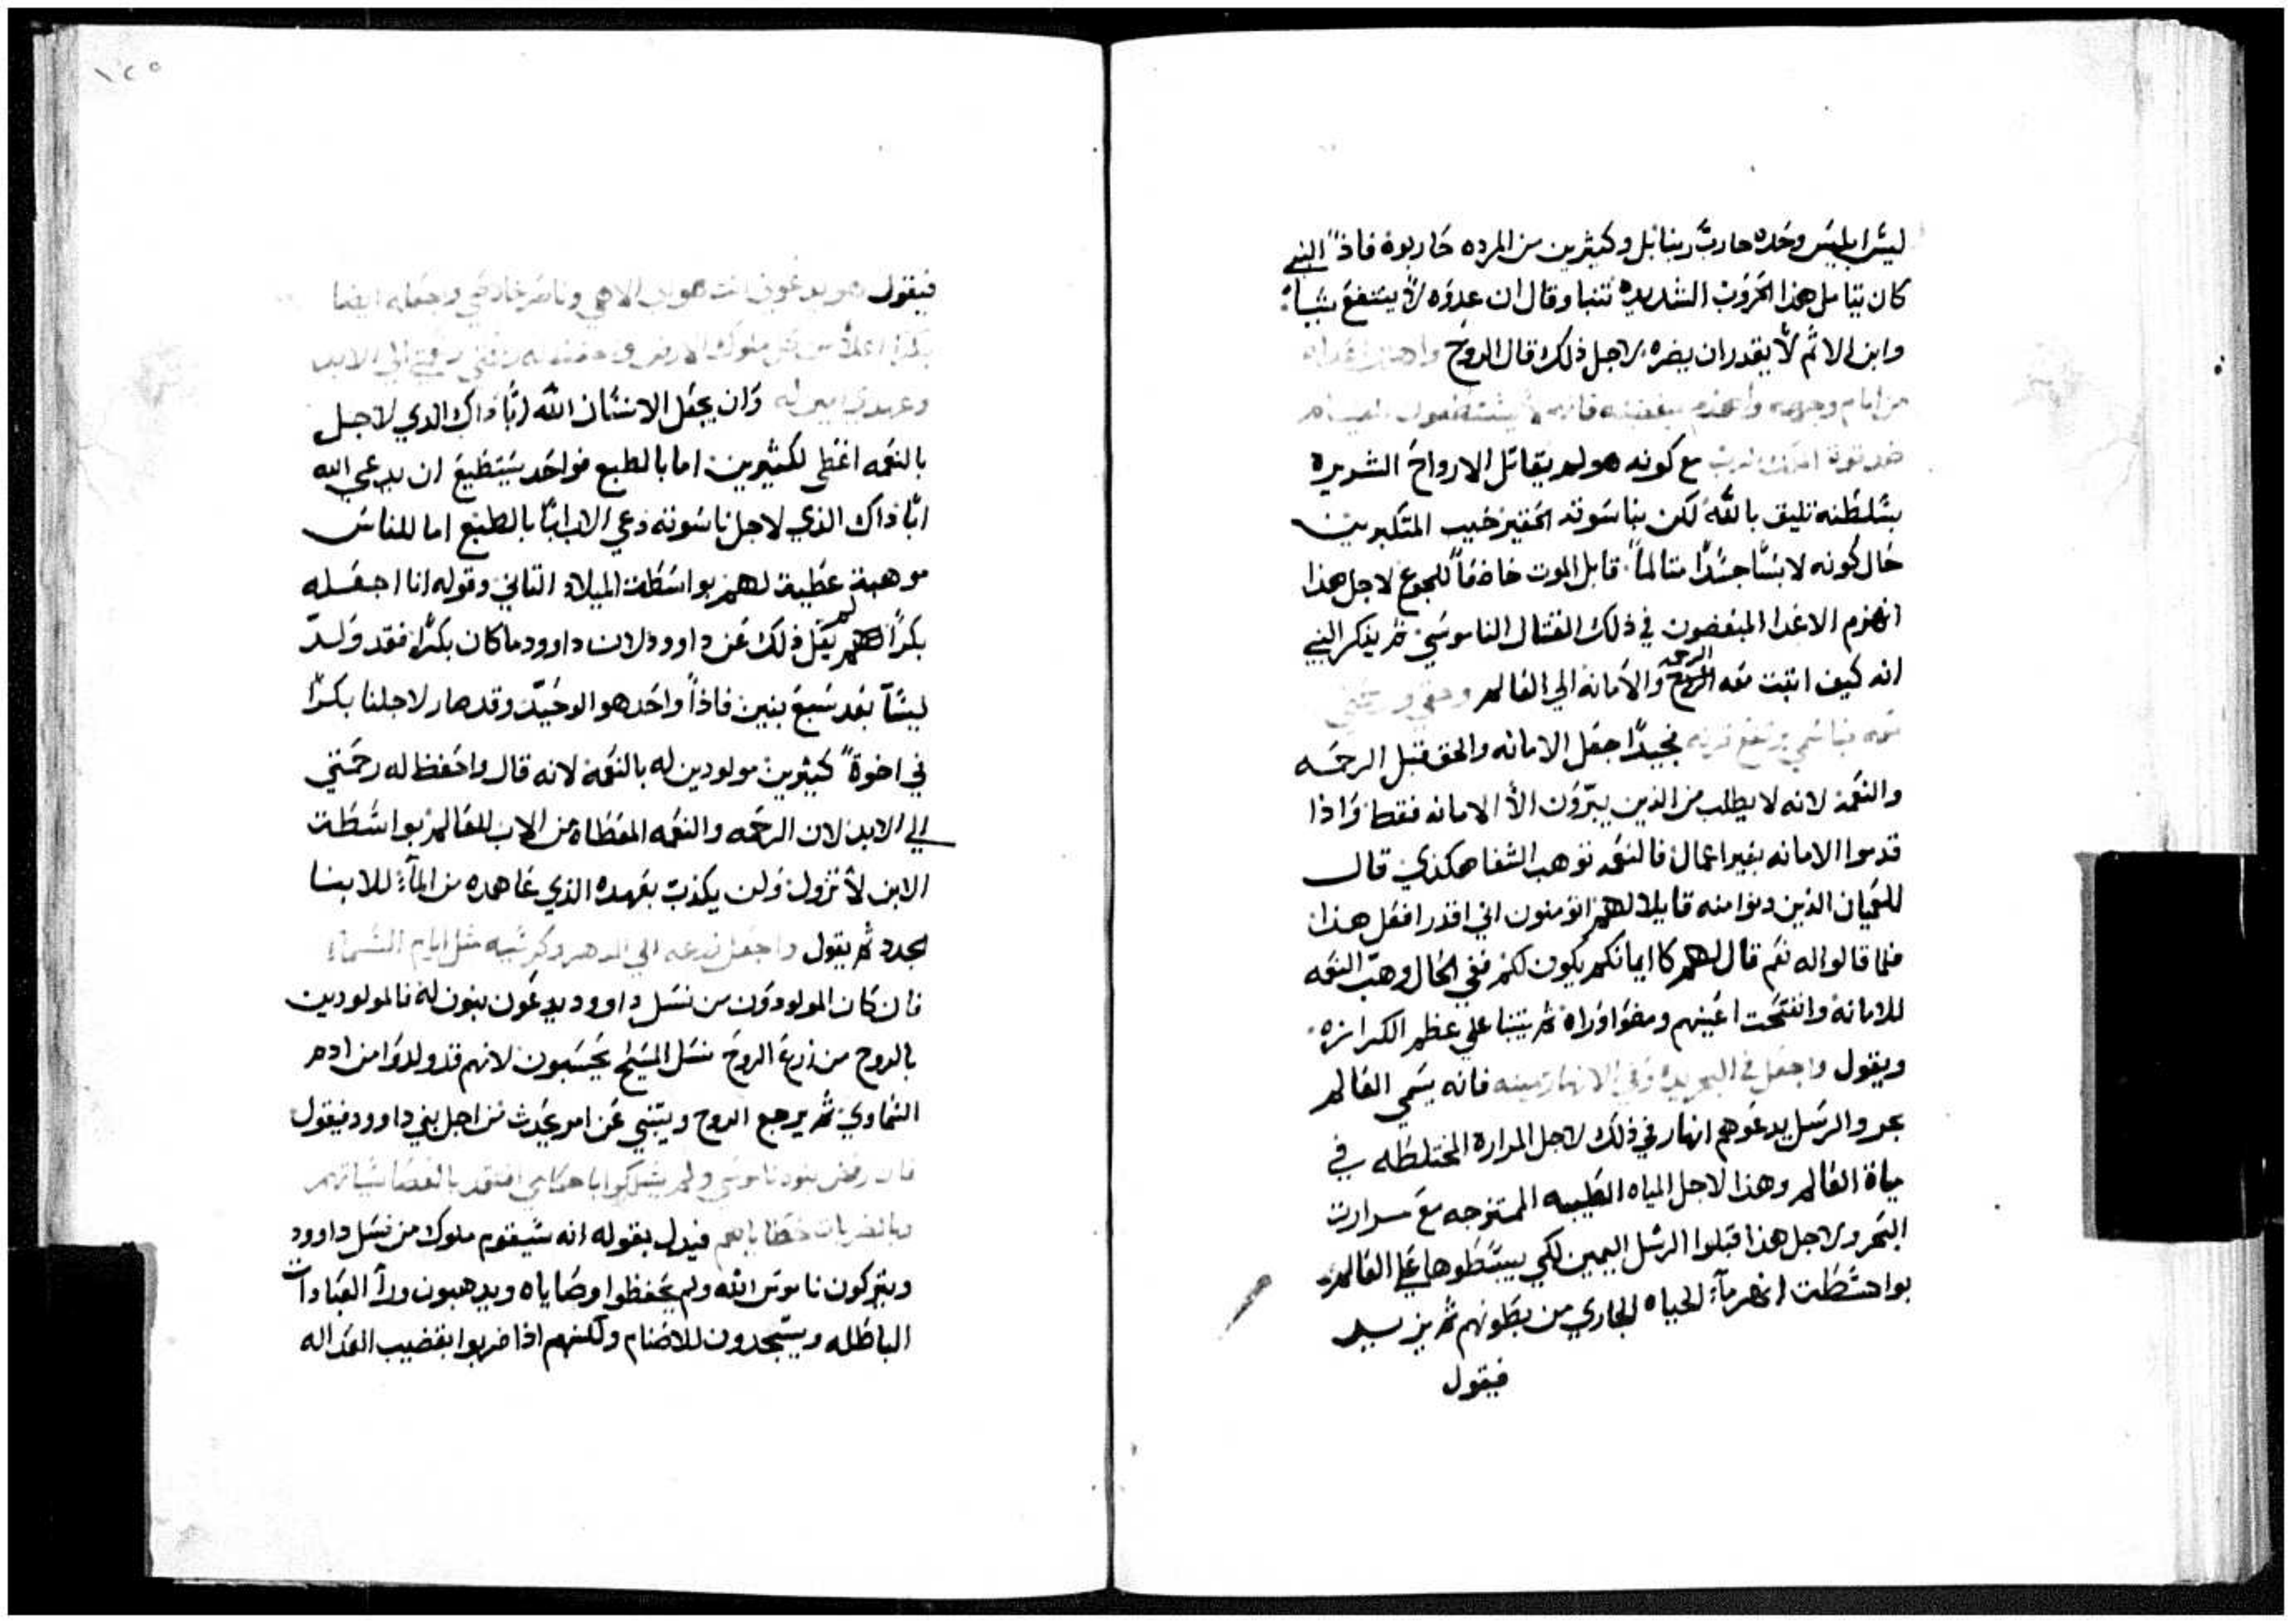 ليس ابليس وحده حارب ربنا بل وكثيرين من المرده حاربوه فاذاً النبي
كان يتامل هذا الحروب الشديده تنبا وقال ان عدوه لا ينتفع شياً
وابن الاثم لا يقدر ان يضره لاجل ذلك قال الروح واهشم اعداه
من امام وجهه
مع كونه هو لم يقاتل الارواح الشريره
بسلطنه تليق بالله لكن بناسوته الحقير خيب المتكبرين
حال كونه لابساً جسداً متالماً قابل الموت خاضعاً للجوع لاجل هذا
انهزم الاعدا المبغضون في ذلك القتال الناموسي ثم يذكر النبي
انه كيف اتيت معه الرحمه والامانه الي العالم وحقي ورحمتي
معه فباسمي يرتفع قرنه فجيداً جعل الامانه والحق قبل الرحمه
والنعمه لانه لا يطلب من الذين يبررون الا الامانه فقط واذا
قدموا الامانه بغير اعمال فالنعمه توهب الشفا هكذي قال
للعميان الذين دنوا منه قايلا لهم اتومنون اني اقدر افعل هذا
فلما قالوا له نعم قال لهم كايمانكم يكون لكم ففي الحال وهب النعمه
للامانه وانفتحت اعينهم ومضوا وراه ثم يتنبا علي عظم الكرازه
ويقول واجعل في البحر يده وفي الانهار يمينه فانه يسمي العالم
بحر والرسل يدعوهم انهار في ذلك لاجل المرارة المختلطه في
مياة العالم وهذا لاجل المياه الطيبه الممتزجه مع مرارت
البحر ولاجل هذا قبلوا الرسل اليمين لكي يبسطوها علي العالم
بواسطت انهر مآ الحياه الجاري من بطونهم ثم يزيد
فيقول
١٢٥
فيقول هو يدعوني انت هو ابي الاهي وناصر خلاصي واجعله ايضا
بكراً اعلا من كل ملوك الارض واحفظ له رحمتي الي الابد
وعهدي امين له وان يجعل الانسان الله اباً ذاك الذي لاجل
بالنعمه اعطي لكثيرين اما بالطبع فواحد يستطيع ان يدعي الله
اباً ذاك الذي لاجل ناسوته دعي الاب اباً بالطبع اما للناس
موهبة عطية لهم بواسطت الميلاد التاني وقوله انا اجعله
بكراً لم يقل ذلك عن داوود لان داوود ما كان بكراً فقد ولد
ليسآ بعد سبع بنين فاذاً واحد هو الوحيد وقد صار لاجلنا بكراً
في اخوة كثيرين مولودين له بالنعمه لانه قال واحفظ له رحمتي
الي الابد لان الرحمه والنعمه المعطاه من الاب للعالم بواسطت
الابن لا تزول ولن يكذب بعهده الذي عاهده من المآ للابنا
الجدد ثم يقول واجعل زرعه الي الدهر وكرسيه مثل ايام السمآ
فان كان المولودون من نسل داوود يدعون بنون له فالمولودين
بالروح من زرع الروح نسل المسيح يحسبون لانهم قد ولدوا من ادم
السماوي ثم يرجع الروح ويتنبي عن امر يحدث من اجل بني داوود فيقول
فان رفض بنوه ناموسي ولم يسلكوا باحكامي افتقد بالعصا سياتهم
وبالضربات خطاياهم فيدل بقوله انه سيقوم ملوك من نسل داوود
ويتركون ناموس الله ولم يحفظوا وصاياه ويدهبون ورآ العبادات
الباطله ويسجدون للاصنام ولكنهم اذا ضربوا بقضيب العداله